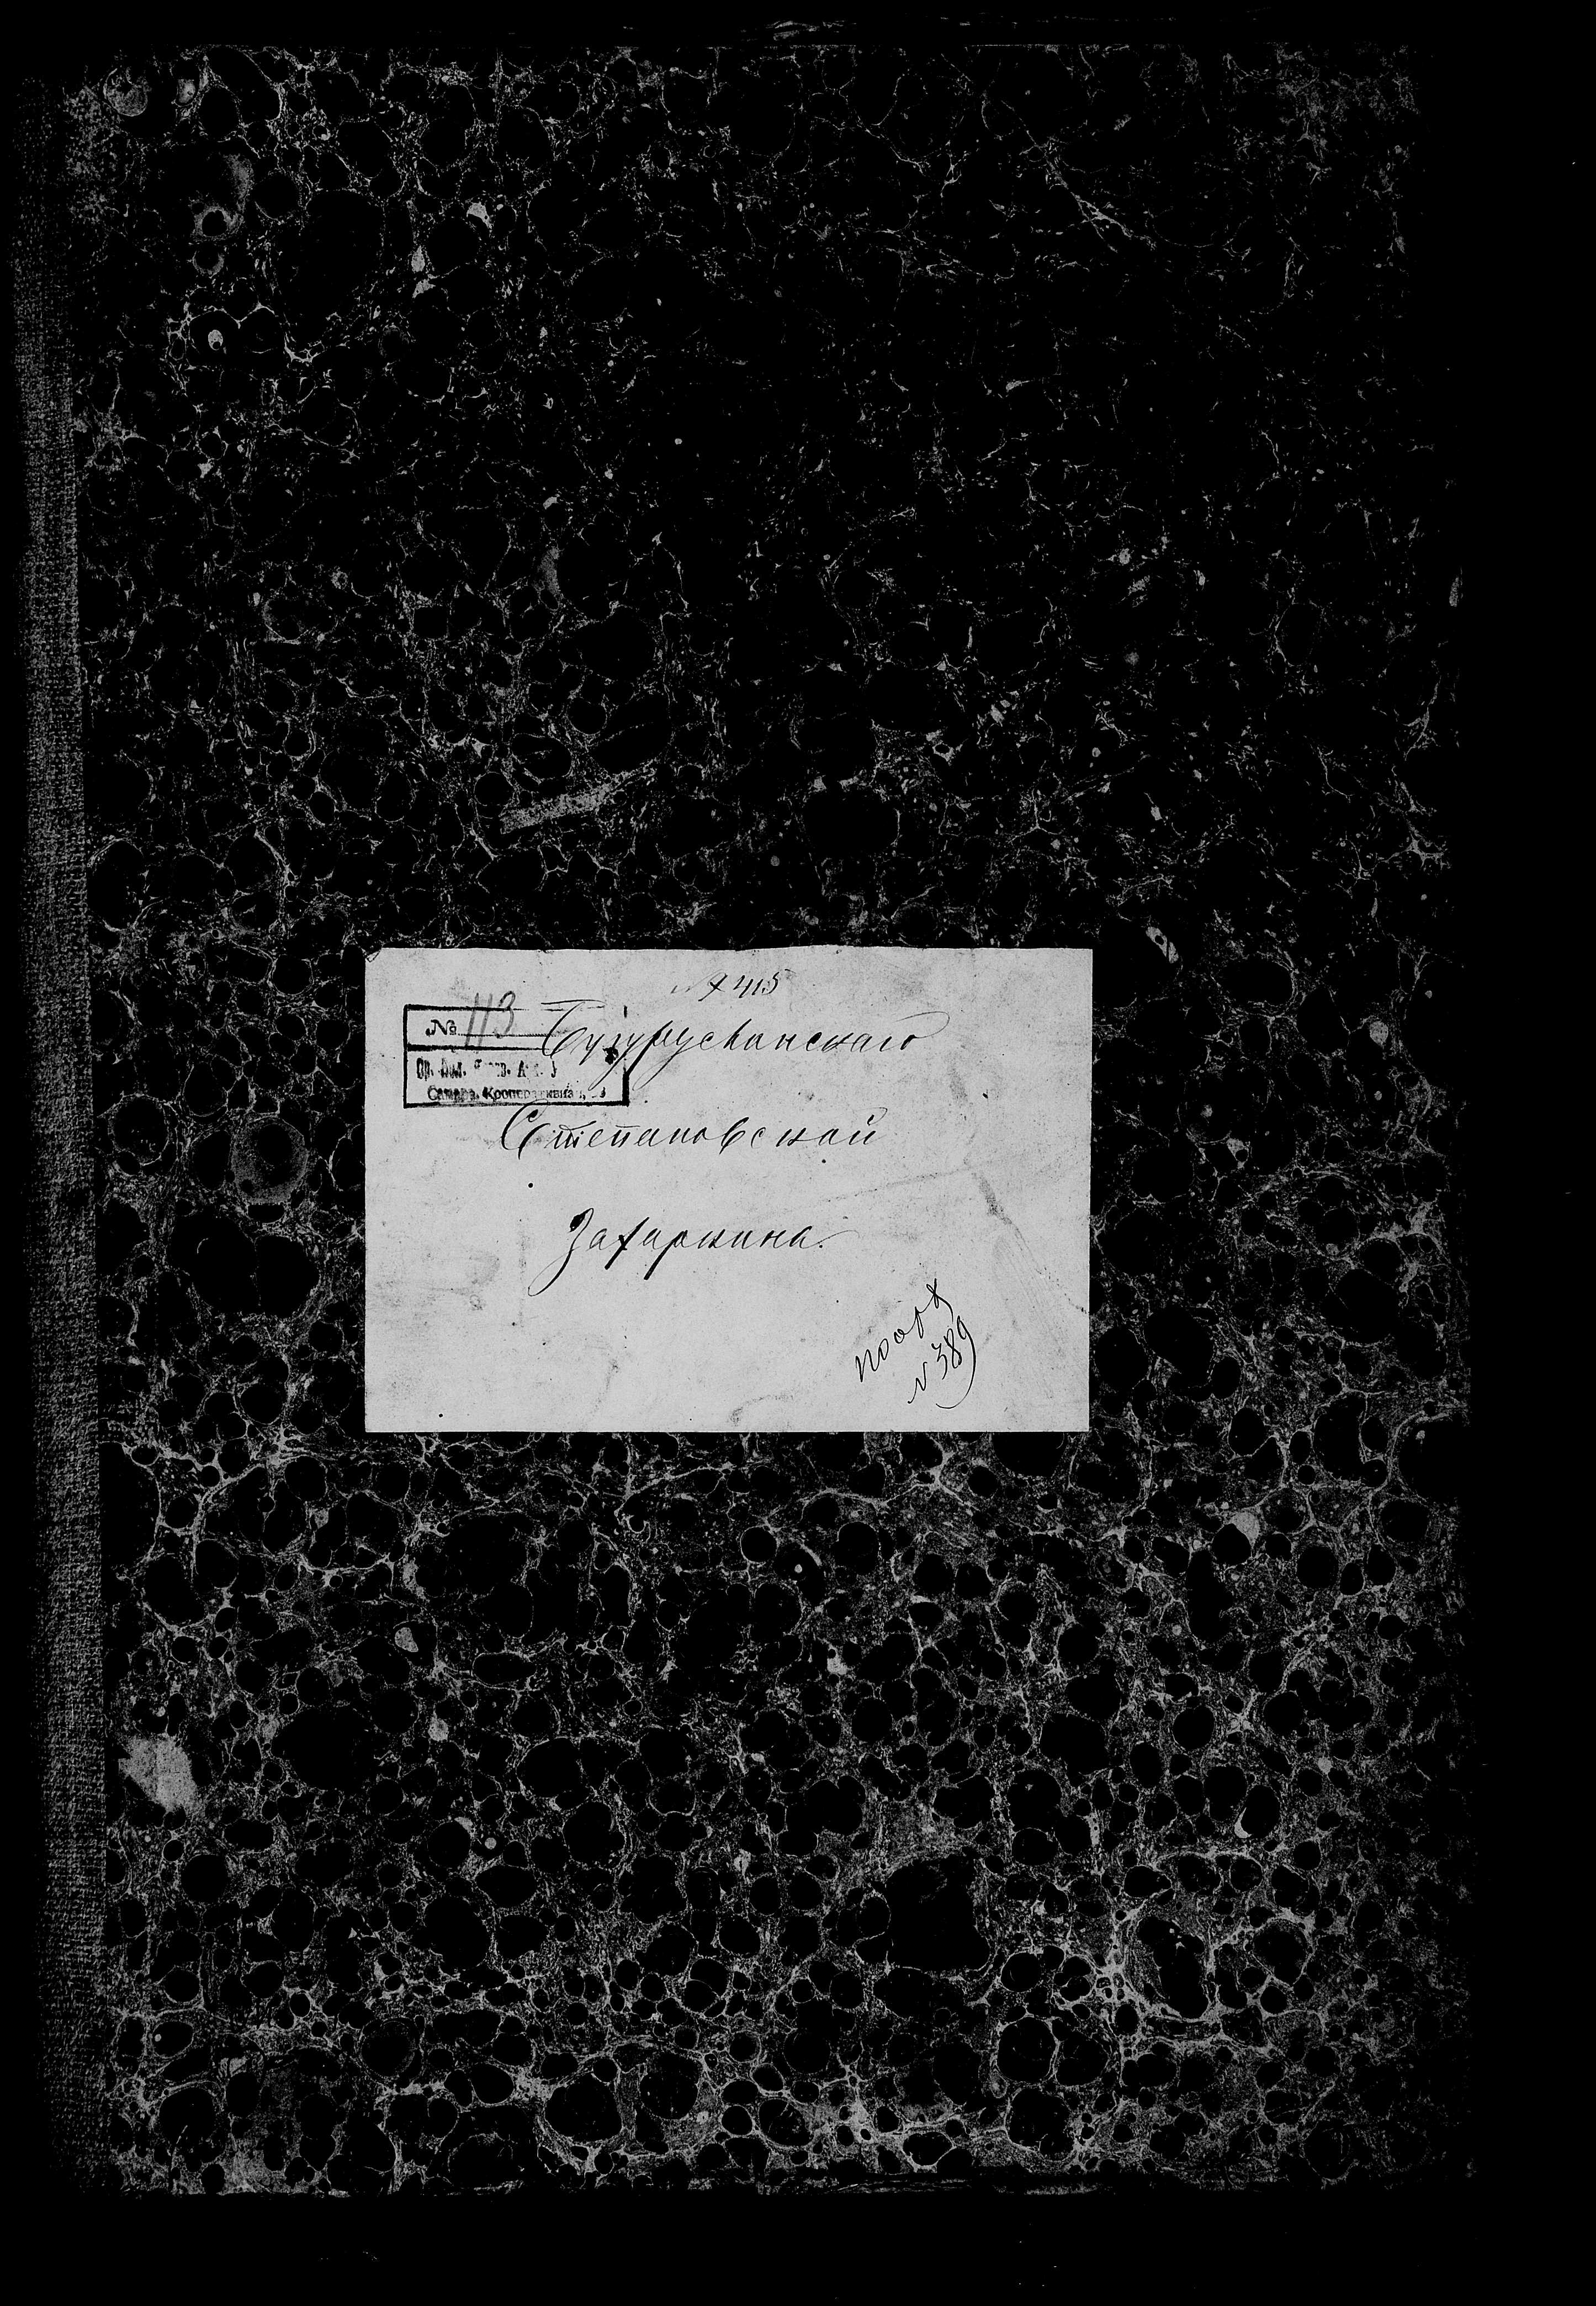 415
№ 113
Бугурусланскаго
Самара, Кооперативная,
Степановской
Захаркина.
по ор
№ 389